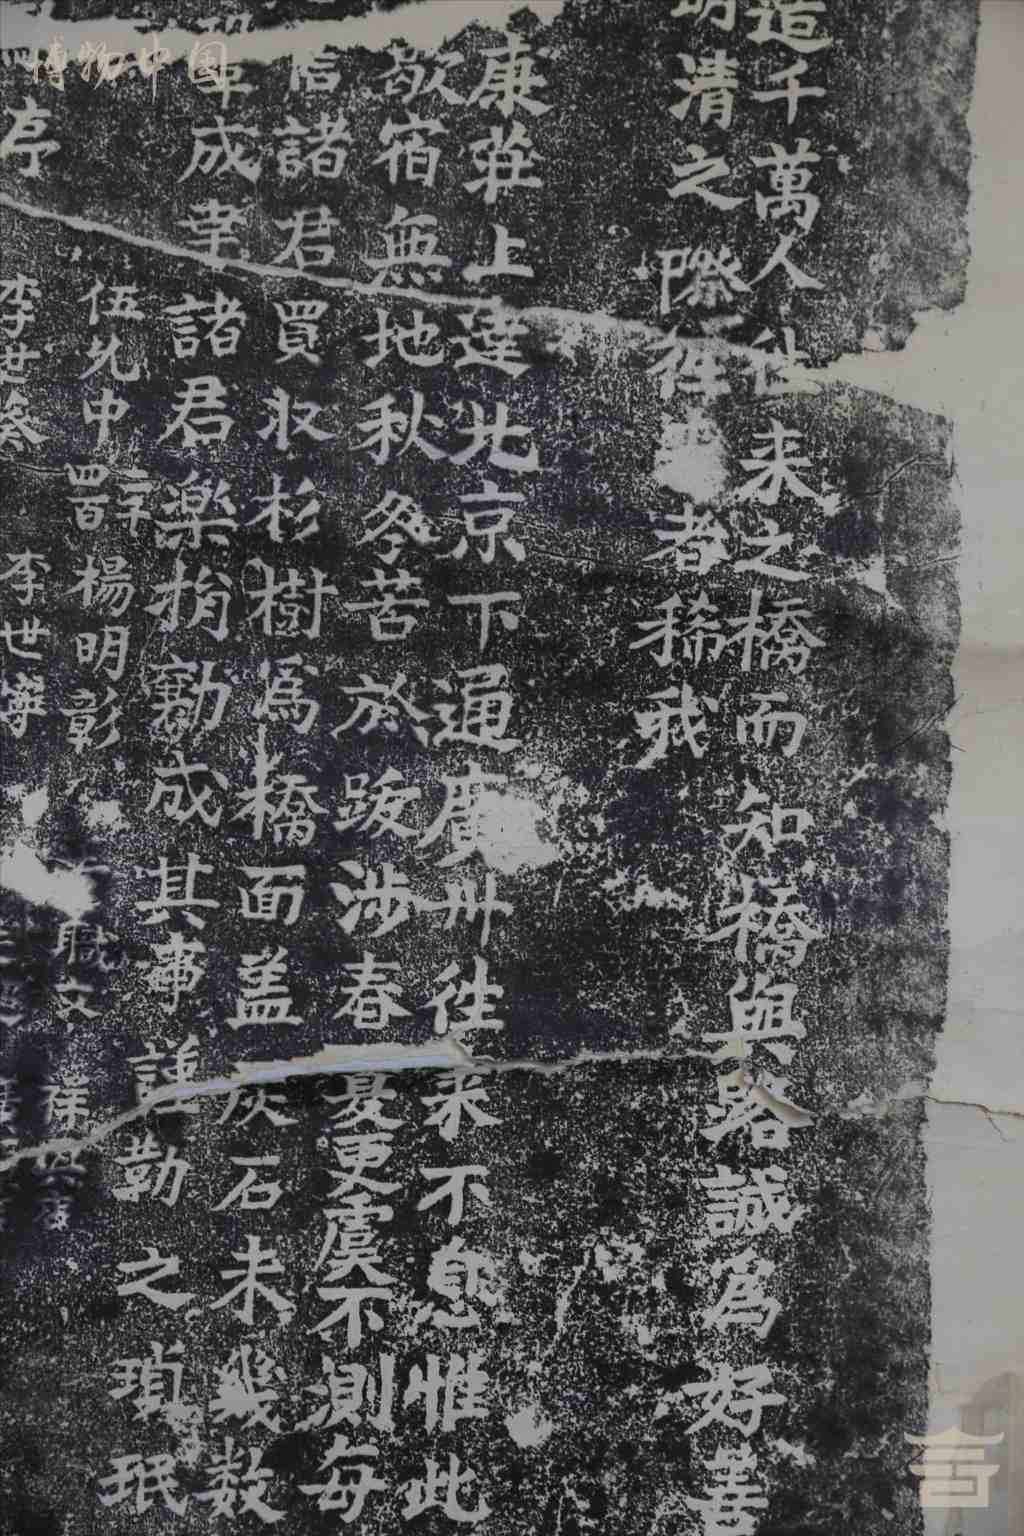 造千萬人往来之橋而知橋與路誠爲好善
明清之際往来者稀我
康莊上達北京下通廣州徃来不怠惟此
歇宿無地秋冬苦於跋涉春夏更虞不測每
信諸君買収杉樹爲橋面盖灰石未幾数
年成幸諸君楽捐勷成其事謹勒之瑣珉
伍允中 四百二十 楊明彰 職文
亭 李世 李世寧
博物中国